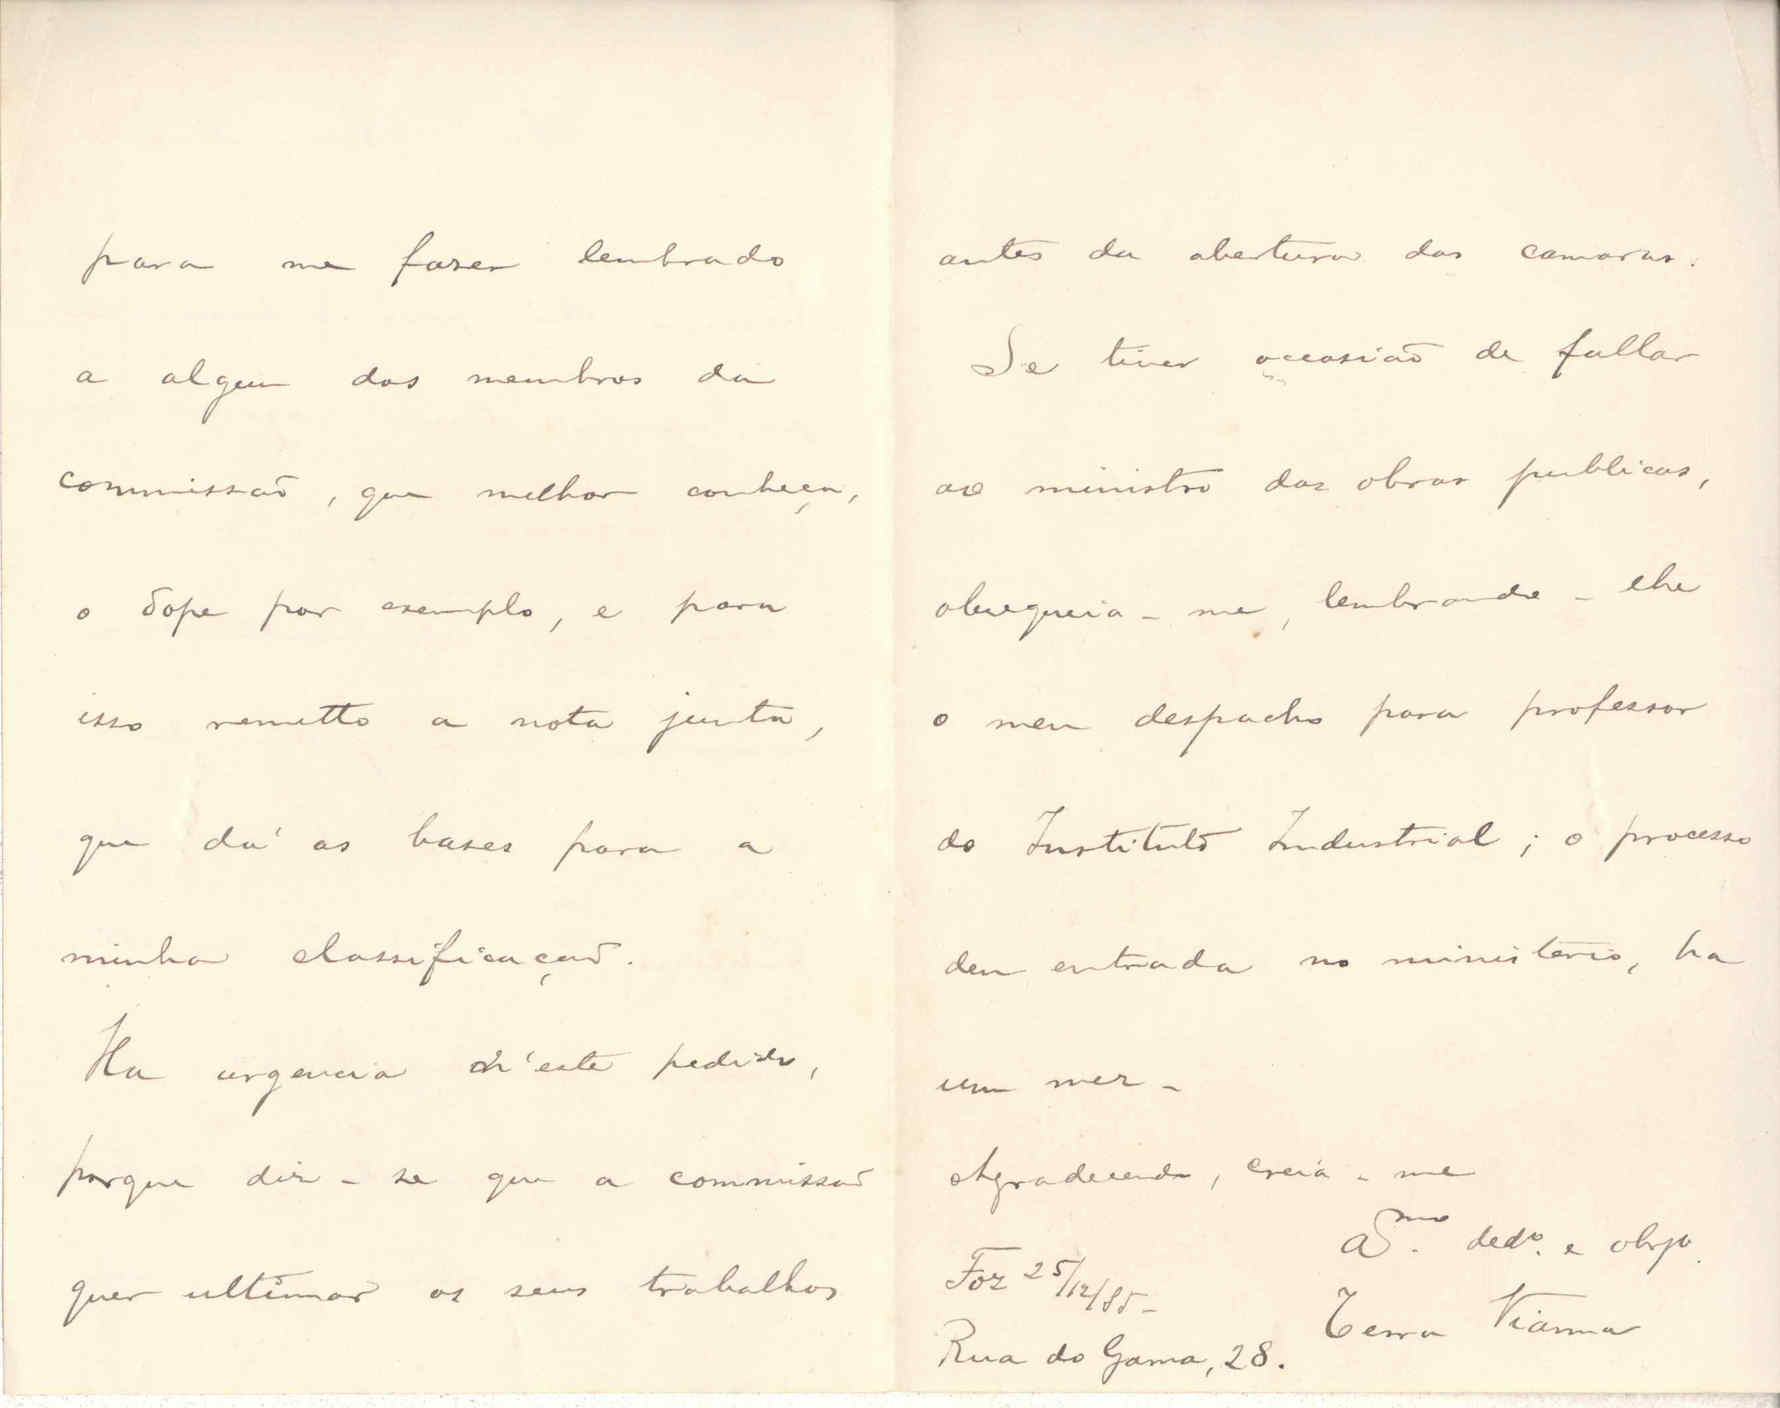 para me fazer lembrado
a algum dos membros da
commissaõ, que melhor conheça,
o por exemplo, e para
isso remetto a nota junta,
que dá as bases para a
minha classificaçaõ.
Ha urgencia n'este pedido,
porque diz-se que a commissaõ
quer ultimar os seus trabalhos
antes da abertura das camaras.
Se tiver occasiaõ de fallar
ao ministro das obras publicas,
obsequeia-me, lembrando-lhe
o meu despacho para professor
do Instituto Industrial; o processo
deu entrada no ministerio, ha
um mez-
Agradecendo, creia-me
dedº. e obgº.
Foz 25/12/85-
Terra Vianna
Rua do Gama, 28.